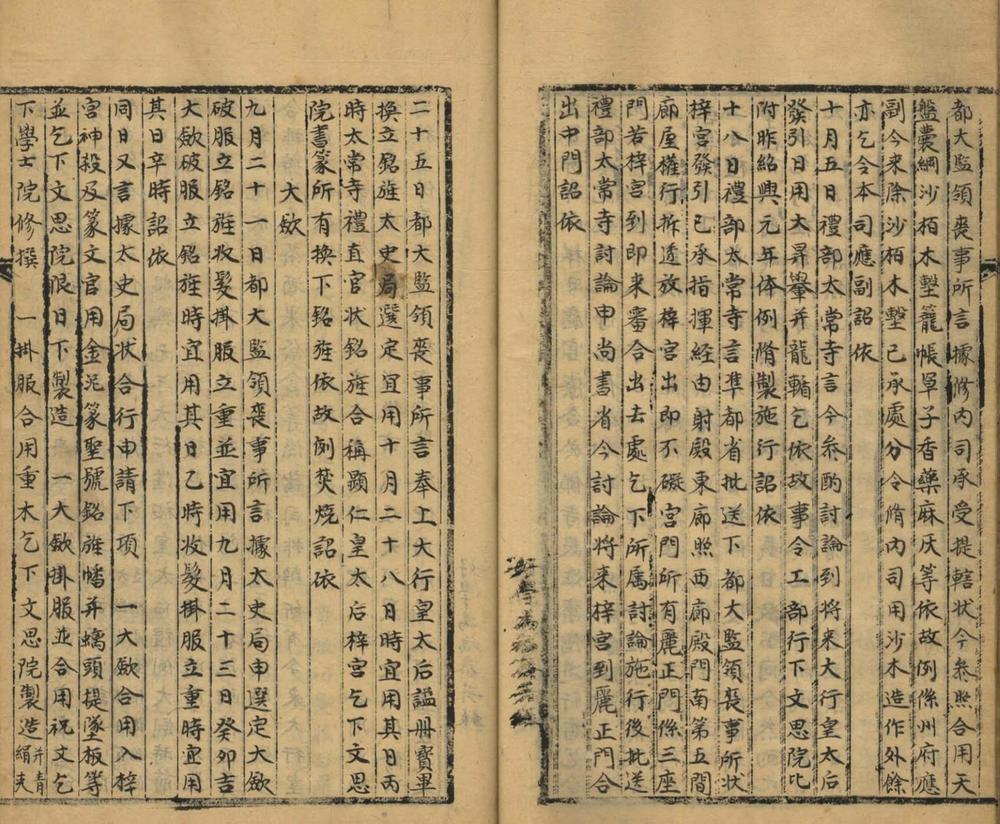 都大監領喪事所言據修内司承受提轄状今參照合用天
盤囊綱沙栢木墼籠帳單子香藥麻灰等依故例係州府應
副今来除沙栢木墼已承處分令脩内司用沙木造作外餘
亦乞令本司應副詔依
十月五日禮部太常寺言今參酌討論到将来大行皇太后
發引日用大昇轝并龍輴乞依故事令工部行下文思院比
附昨紹興元年体例脩製施行詔依
十八日禮部太常寺言凖都省批送下都大監領喪事所状
梓宮發引已承指揮經由射殿東廊照西廊殿門南第五間
廊屋權行拆透放梓宮出即不礙宮門所有麗正門係三座
門若梓宮到即未審合出去處乞下所属討論施行後批送
禮部太常寺討論申尚書省今討論将来梓宮到麗正門合
出中門詔依
二十五日都大監領喪事所言奉上大行皇太后謚册寳畢
換立銘旌太史局選定宜用十月二十八日時宜用其日丙
時太常寺禮直官状銘旌合稱顕仁皇太后梓宮乞下文思
院書篆所有換下銘旌依故例焚燒詔依
大斂
九月二十一日都大監領喪事所言據太史局申選定大斂
破服立銘旌收髮掛服立重並宜用九月二十三日癸卯吉
大斂破服立銘旌時宜用其日乙時收髮掛服立重時宜用
其日辛時詔依
同日又言據太史局状合行申請下項 一大斂合用入梓
宮神殺及篆文官用金泥篆聖號銘旌幡并蠕頭提墜板等
並乞下文思院限日下製造 一大斂掛服並合用祝文乞
下學士院修撰 一掛服合用重木乞下文思院製造并青絹夫